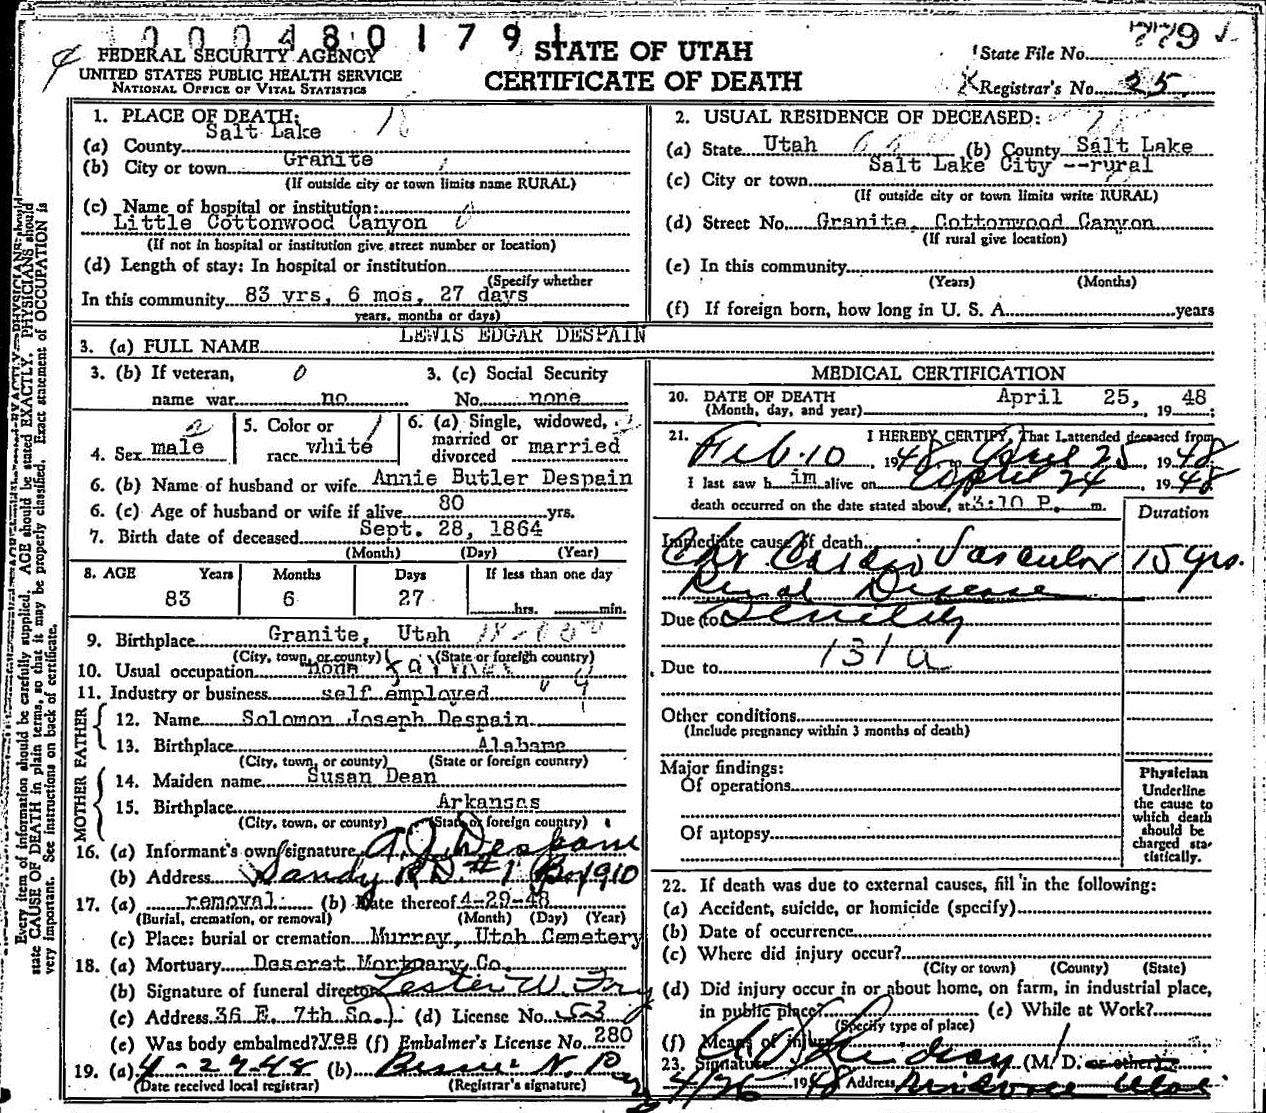 000480179
779
FEDERAL SECURITY AGENCY
UNITED STATES PUBLIC HEALTH SERVICE
NATIONAL OFFICE OF VITAL STATISTICS
STATE OF UTAH
CERTIFICATE OF DEATH
State File No. 779
Registrar's No. 25
Every item of information should be carefully supplied. AGE should be stated EXACTLY. PHYSICIANS should
state CAUSE OF DEATH in plain terms, so that it may be properly classified. Exact statement of OCCUPATION is
very important. See instructions on back of certificate.
1. PLACE OF DEATH:
(a) County Salt Lake
(b) City or town Granite
(If outside city or town limits name RURAL)
(c) Name of hospital or institution:
Little Cottonwood Canyon
(If not in hospital or institution give street number or location)
(d) Length of stay: In hospital or institution
(Specify whether
In this community 83 yrs, 6 mos, 27 days
years, months or days)
2. USUAL RESIDENCE OF DECEASED:
(a) State Utah (b) County Salt Lake
(c) City or town Salt Lake City --rural
(If outside city or town limits write RURAL)
(d) Street No. Granite, Cottonwood Canyon
(If rural give location)
(e) In this community
(Years) (Months)
(f) If foreign born, how long in U. S. A. years
3. (a) FULL NAME LEWIS EDGAR DESPAIN
3. (b) If veteran, 0
name war no
3. (c) Social Security
No. none
4. Sex male
5. Color or
race white
6. (a) Single, widowed,
married or
divorced married
6. (b) Name of husband or wife Annie Butler Despain
6. (c) Age of husband or wife if alive 80 yrs.
7. Birth date of deceased Sept. 28, 1864
(Month) (Day) (Year)
8. AGE Years Months Days If less than one day
83 6 27 hrs. min.
9. Birthplace Granite, Utah
(City, town, or county) (State or foreign country)
10. Usual occupation none farmer
11. Industry or business self employed
FATHER
12. Name Solomon Joseph Despain
13. Birthplace Alabama
(City, town, or county) (State or foreign country)
MOTHER
14. Maiden name Susan Dean
15. Birthplace Arkansas
(City, town, or county) (State or foreign country)
16. (a) Informant's own signature A J Despain
(b) Address Sandy R D #1 Box 910
17. (a) removal (b) Date thereof 4-29-48
(Burial, cremation, or removal) (Month) (Day) (Year)
(c) Place: burial or cremation Murray, Utah Cemetery
18. (a) Mortuary Deseret Mortuary Co.
(b) Signature of funeral director Lester W. Fry
(c) Address 36 E. 7th So. (d) License No. 53
(e) Was body embalmed? yes (f) Embalmer's License No. 280
19. (a) 4-29-48 (b)
(Date received local registrar) (Registrar's signature)
MEDICAL CERTIFICATION
20. DATE OF DEATH April 25, 1948;
(Month, day, and year)
21. I HEREBY CERTIFY, That I attended deceased from
Feb. 10, 1948, to April 25 1948
I last saw h im alive on April 24, 1948
death occurred on the date stated above, at 3:10 P. m.
Duration
Immediate cause of death
Chr Cardio Vascular 15 yrs.
Renal Disease
Due to Senility
131a
Due to
Other conditions
(Include pregnancy within 3 months of death)
Major findings:
Of operations
Of autopsy
Physician
Underline
the cause to
which death
should be
charged sta-
tistically.
22. If death was due to external causes, fill in the following:
(a) Accident, suicide, or homicide (specify)
(b) Date of occurrence
(c) Where did injury occur?
(City or town) (County) (State)
(d) Did injury occur in or about home, on farm, in industrial place,
in public place? (e) While at Work?
(Specify type of place)
(f) Means of injury
23. Signature (M. D. or other)
4/26 1948 Address